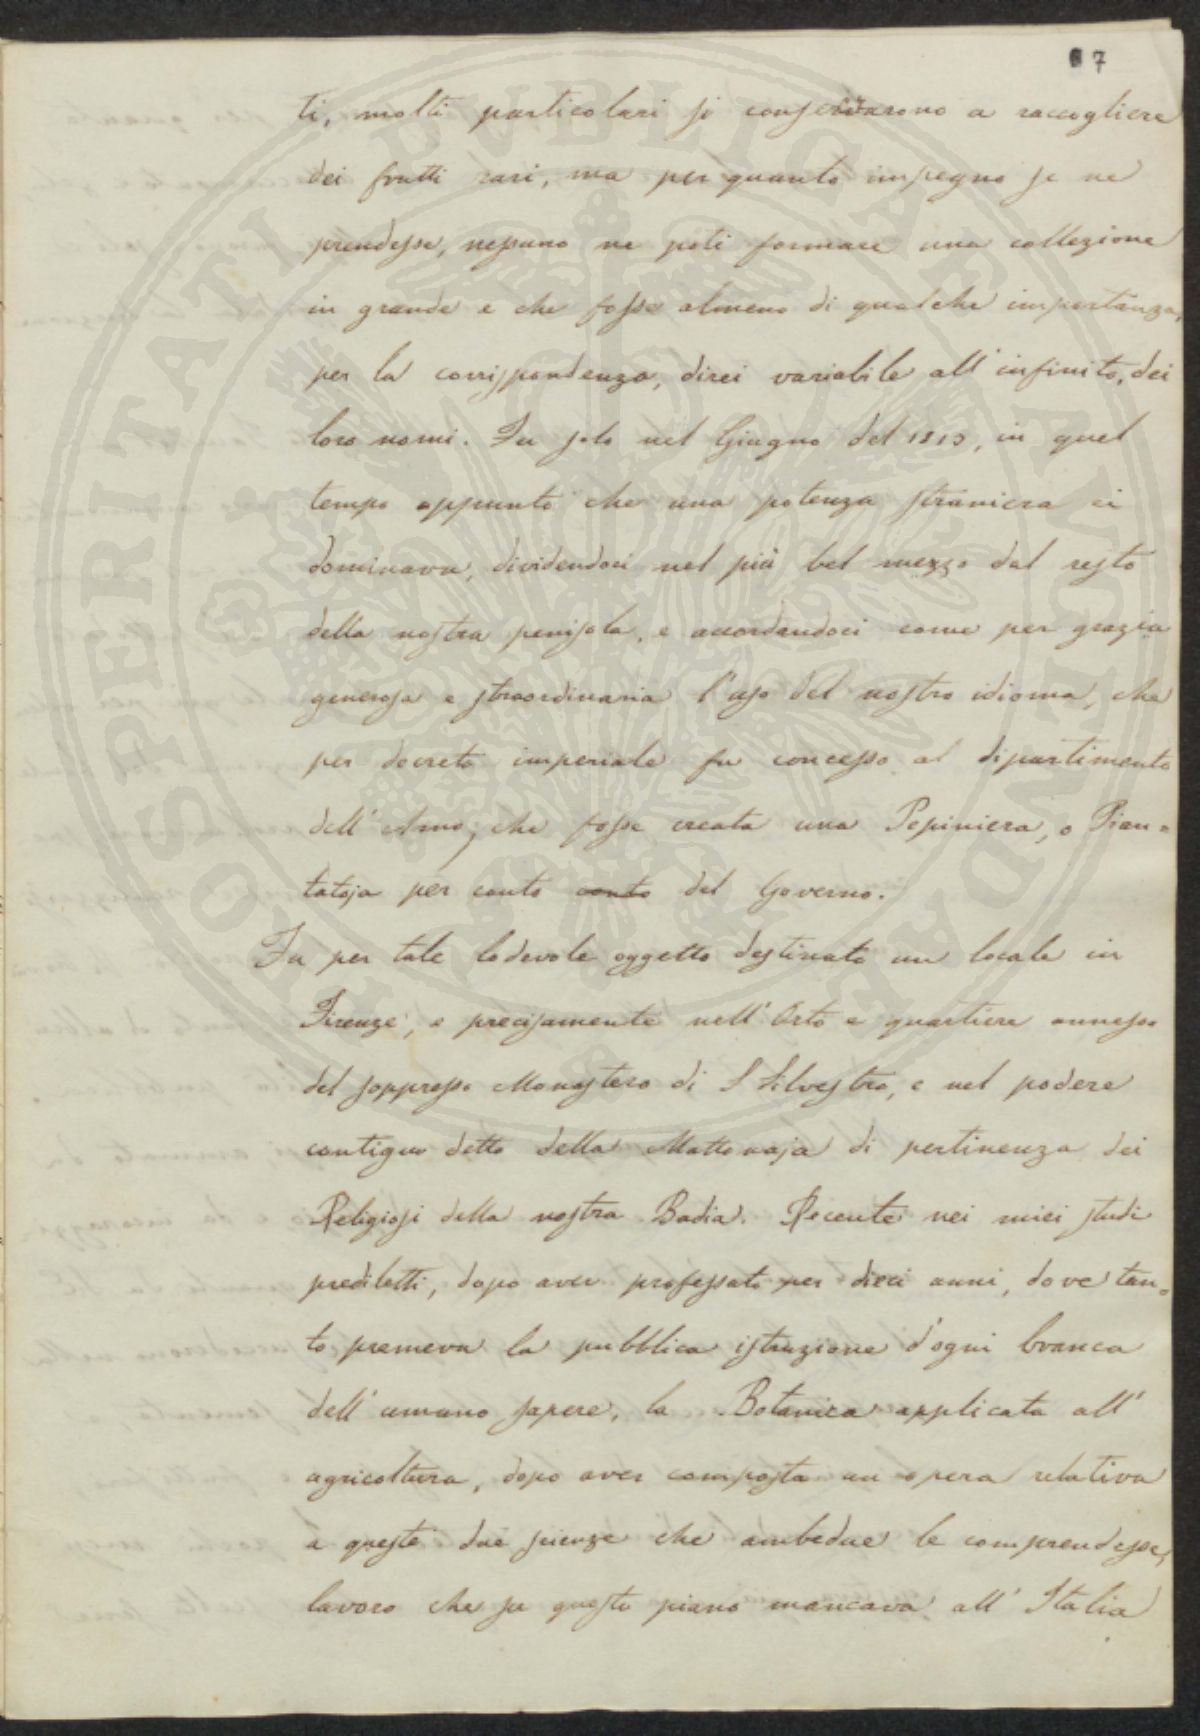 67
ti, molti particolari si conservarono a raccogliere
dei frutti rari, ma per quanto impegno se ne
prendesse, nessuno ne potè formare una collezione
in grande e che fosse almeno di qualche importanza,
per la corrispondenza, direi variabile all' infinito, dei
loro nomi. Fu solo nel Giugno del 1813, in quel
tempo appunto che una potenza straniera ci
dominava, dividendoci nel più bel mezzo dal resto
della nostra penisola, e accordandoci come per grazia
generosa e straordinaria l'uso del nostro idioma, che
per decreto imperiale fu concesso al dipartimento
dell' Arno, che fosse creata una Pepiniera, o Pian=
tatoja per conto conto del Governo.
Fu per tale lodevole oggetto destinato un locale in
Firenze, e precisamente nell' Orto e quartiere annesso
del soppresso Monastero di S Silvestro, e nel podere
contiguo detto della Mattonaja di pertinenza dei
Religiosi della nostra Badia. Recente nei miei studi
prediletti, dopo aver professato per dieci anni, dove tan=
to premeva la pubblica istruzione d'ogni branca
dell' umano sapere, la Botanica applicata all'
agricoltura, dopo aver composta un opera relativa
a queste due scienze che ambedue le comprendesse,
lavoro che su questo piano mancava all' Italia
PROSPERITATI PUBLICAE AUGENDAE